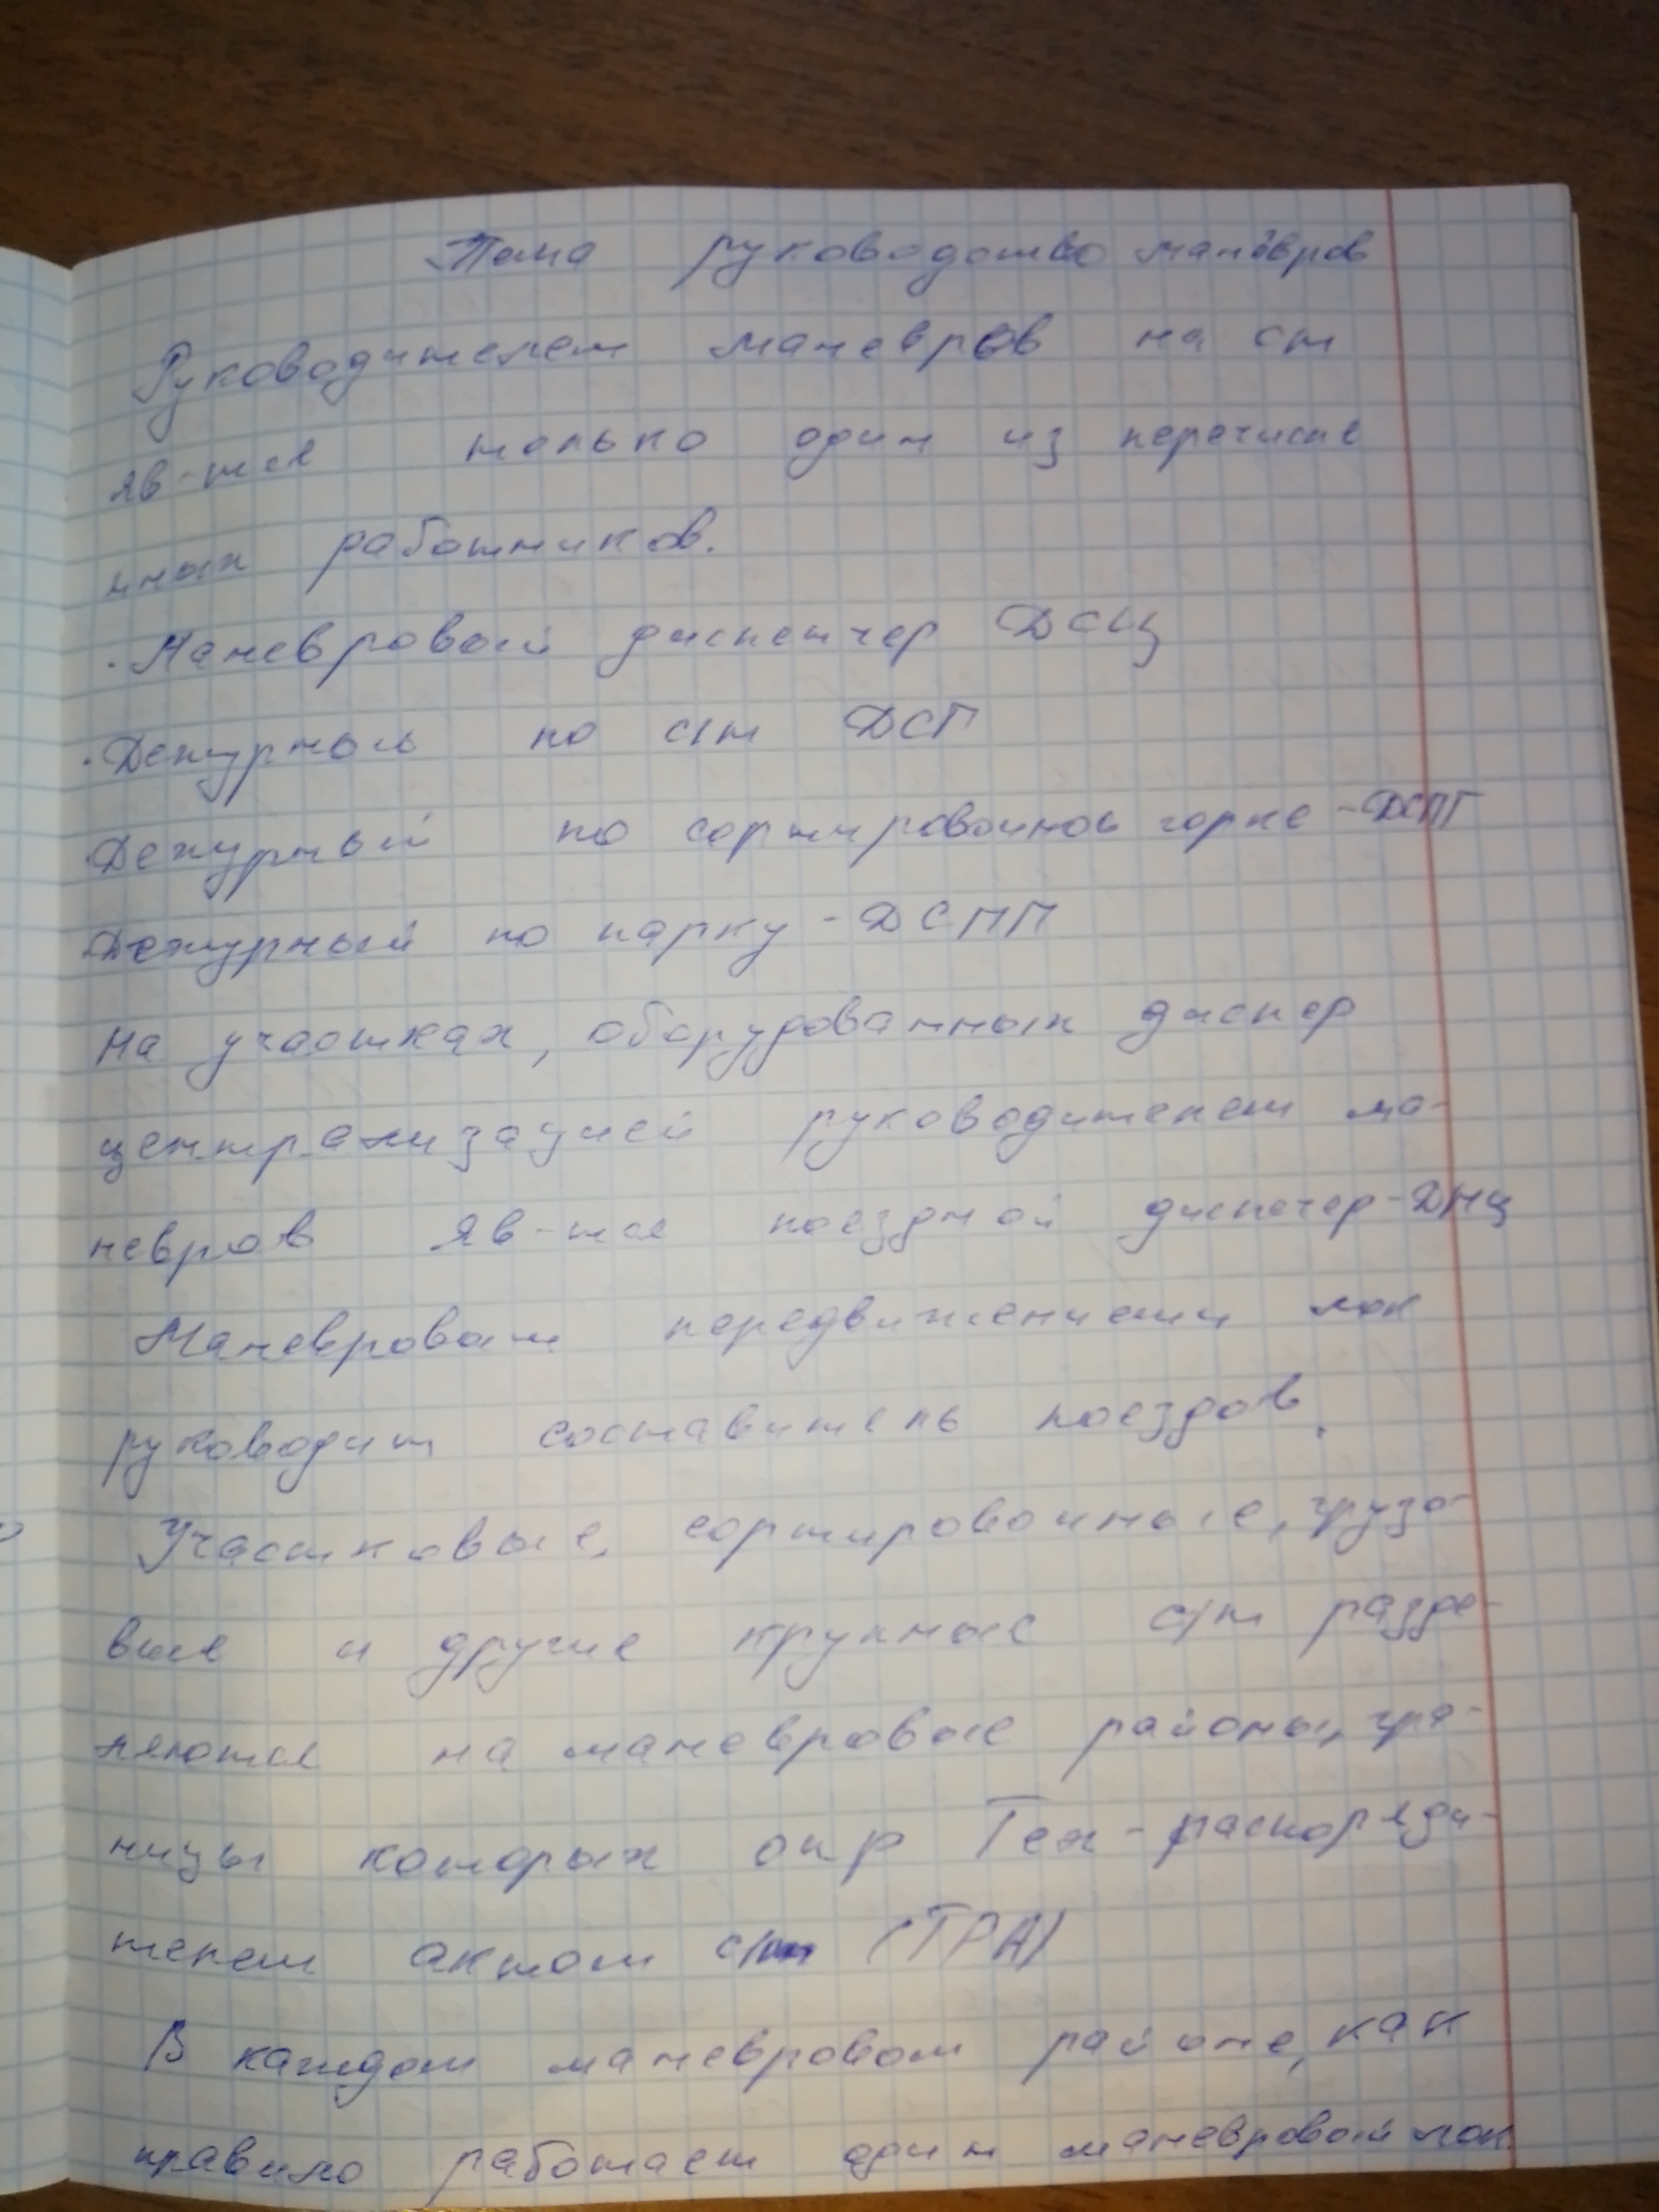 Тема руководство манёвров
Руководителем маневров на ст
яв-тся только один из перечисле
нных работников.
· Маневровый диспетчер ДСЦ
· Дежурный по с/т ДСП
· Дежурный по сортировочной горке - ДСПГ
Дежурный по парку - ДСПП
На участках, оборудованных диспер
централизацией руководителем ма-
невров яв-тся поездной диспечер - ДНЦ
Маневровым передвижением лок
руководит составитель поездов.
Участковые, сортировочные, грузо-
вые и другие крупные с/т разде-
ляются на маневровые районы, гра-
ницы которых опр Тех-распоряди-
телем актом с/т (ТРА)
В каждом маневровом районе, как
правило работает один маневровый лок